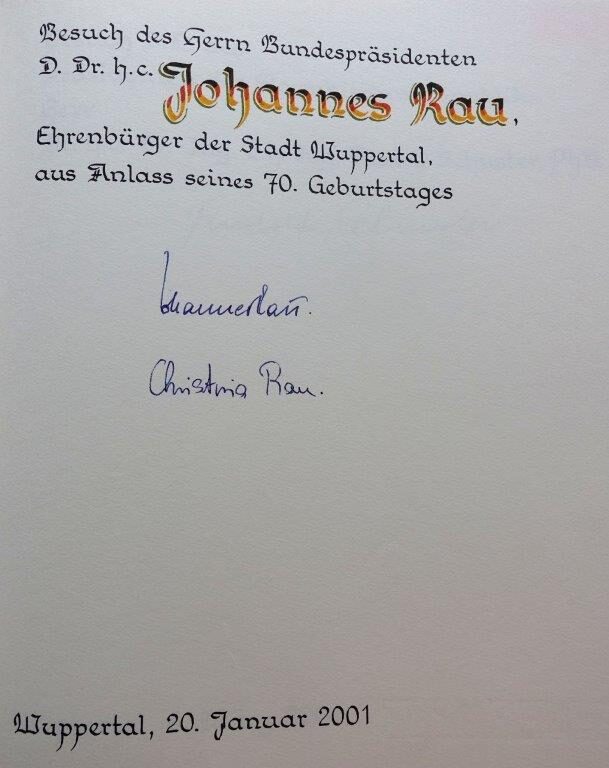 Besuch des Herrn Bundespräsidenten
D. Dr. h.c. Johannes Rau,
Ehrenbürger der Stadt Wuppertal,
aus Anlass seines 70. Geburtstages
Johannes Rau.
Christina Rau.
Wuppertal, 20. Januar 2001